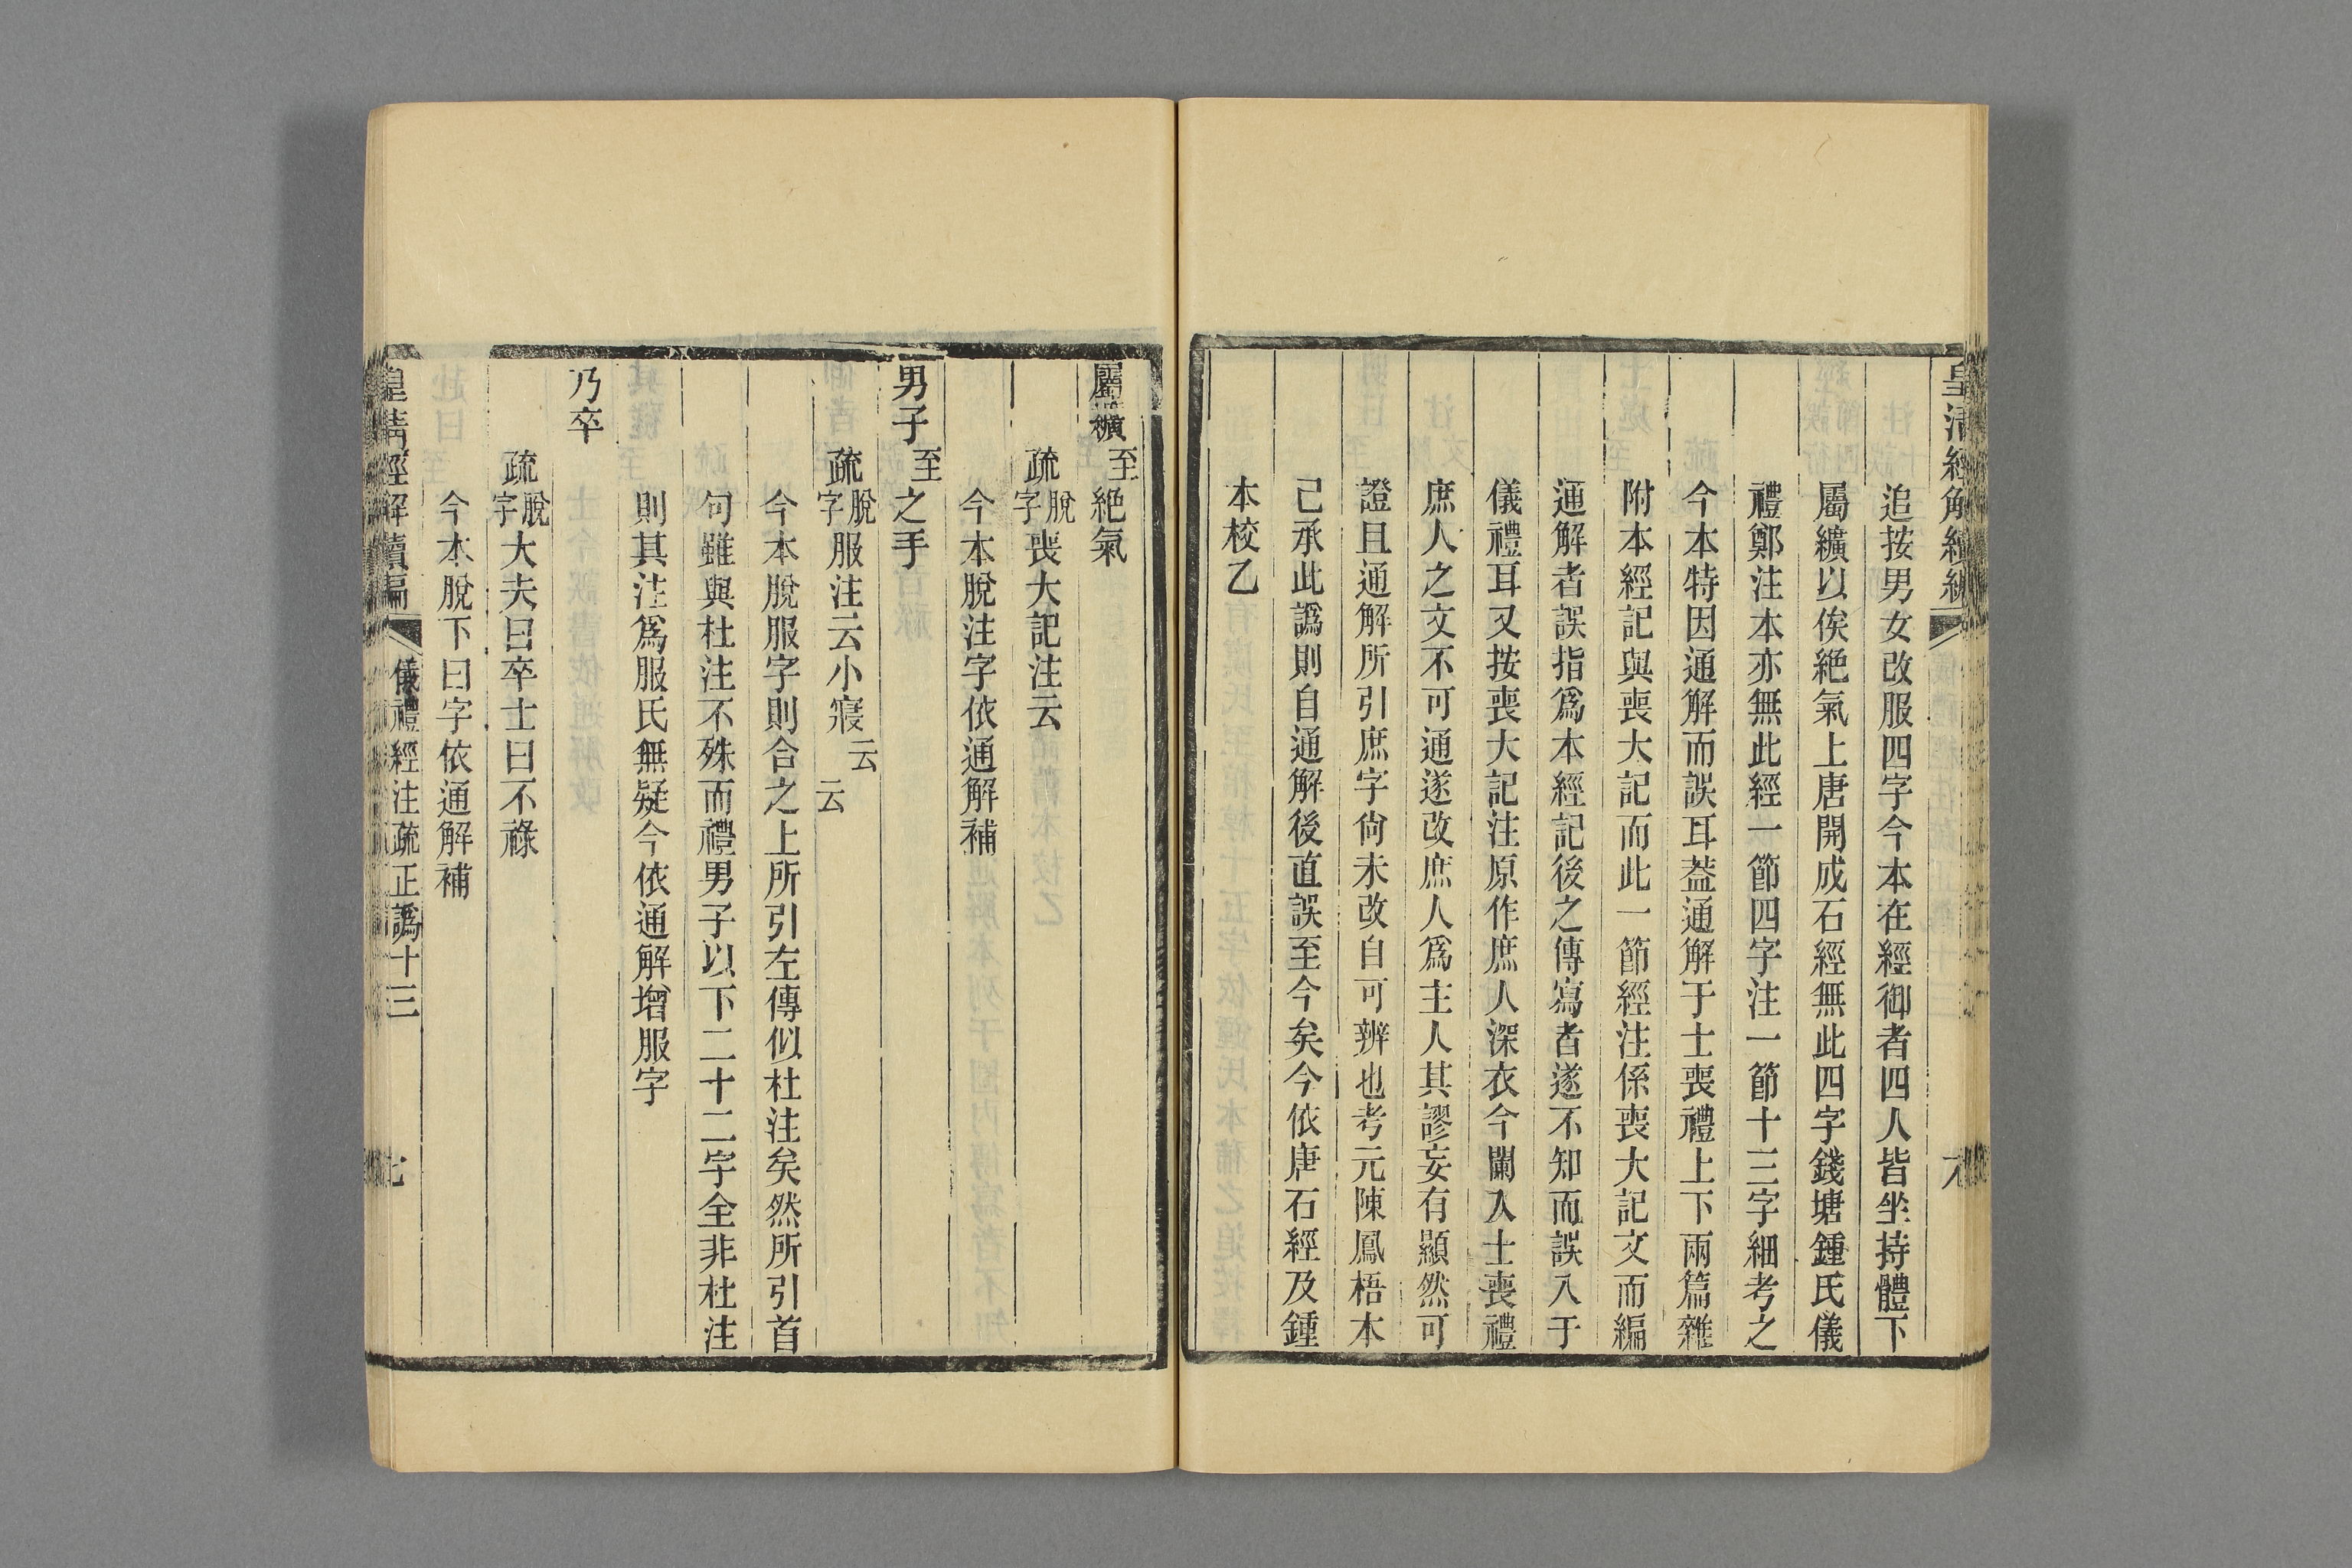 皇清經解續編
六
追按男女改服四字今本在經御者四人皆坐持體下
屬纊以俟絶氣上唐開成石經無此四字錢塘鍾氏儀
禮鄭注本亦無此經一節四字注一節十三字細考之
今本特因通解而誤耳葢通解于士喪禮上下兩篇雜
附本經記與喪大記而此一節經注係喪大記文而編
通解者誤指爲本經記後之傳寫者遂不知而誤入于
儀禮耳又按喪大記注原作庶人深衣今闌入士喪禮
庶人之文不可通遂改庶人爲主人其謬妄有顯然可
證且通解所引庶字尙未改自可辨也考元陳鳳梧本
已承此譌則自通解後直誤至今矣今依唐石經及鍾
本校乙
屬纊至絶氣
疏脫字喪大記注云
今本脫注字依通解補
男子至之手
疏脫字服注云小寢云云
今本脫服字則合之上所引左傳似杜注矣然所引首
句雖與杜注不殊而禮男子以下二十二字全非杜注
則其注爲服氏無疑今依通解增服字
乃卒
疏脫字大夫曰卒士曰不祿
今本脫下曰字依通解補
皇清經解續編
儀禮經注疏正譌十三
七